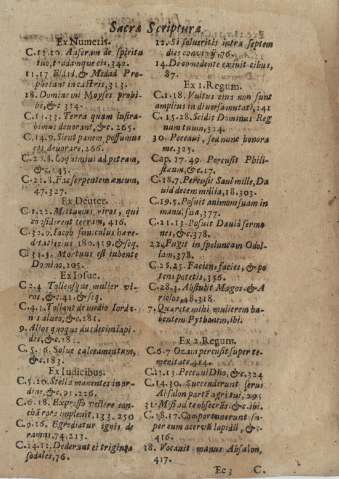 Sacra Scriptura
Ex Numeris.
C. 11.10. Auferam de spiritu
tuo, tradamque eis, 342.
11.17 Eldad, & Medad Pro-
phetant in castris, 313.
18. Domine mi Moyses prohi-
be, &c 314.
C. 13.33. Terra quam lustra-
bimus deuorat, &c. 265.
C. 14.9. Sicut panem possumus
eos deuorare, 266.
C. 2.8. Loquimini ad petram,
&c, 145.
C. 21.8. Fac serpentem æneum,
47. 327.
Ex Deuter.
C. 1.22. Mittamus viros, qui
considerent terram, 416.
C. 32.9. Iacob funiculus hære-
ditatis eius 180. 319. & seq.
C. 34.5. Mortuus est iubente
Domino, 205.
Ex Iosue.
C 2.4 Tollensque mulier vi-
ros, &c. 41. & sq.
C. 4.3. Tollent de medio Iorda-
nis alueo, &c. 181.
9. Alios quoque duodecim lapi-
des, &c. 181.
C. 5.16. Solue calceamentum,
&c. 183.
Ex Iudicibus.
C. 5.20. Stellæ manentes in or-
dine, &c, 91. 226.
C. 6.38. Expresso vellere con-
cham rore impleuit, 133. 250
C. 9.16. Egrediatur ignis de
ramno, 74. 213.
C. 14.11. Dederunt ei triginta
sodales, 76.
12. Si solueritis intra septem
dies conuiuij, 76.
14. De comedente exiuit cibus,
87.
Ex 1. Regum.
C. 1.18. Vultus eius non sunt
amplius in diuersa mutati, 241
C. 15.28. Scidit Dominus Reg
num tuum, 314.
30. Peccaui, sed nunc honora
me. 325.
Cap. 17. 49. Percussit Phili-
stæum, &c. 17.
C. 18.7. Percussit Saul mille, Da
uid decem millia, 18. 303.
C. 19.5. Posuit animam suam in
manu sua, 377.
C. 21.13. Posuit Dauid sermo
nes, &c. 378.
22. Fugit in speluncam Odol-
lam, 378.
C. 28.25. Faciens facies, & po
tens poteris, 356.
C. 28.3. Abstulit Magos & A
riolos, 48. 318.
7. Quærite mihi mulierem ha-
bentem Pythonem, ibi.
Ex 2. Regum.
C. 6.7 Oza in percussit super te-
meritate, 414.
C. 12.13. Peccaui Dño, &c. 324
C. 14.30. Succenderunt serui
Absalon partē agri tui, 20.
31. Misi ad te obsecrās &c. ibi.
C. 18.17. Comportauerunt su-
per eum aceruū lapidū, &
416.
18. Vocauit manus Absalon,
417.
Ee 3 C.